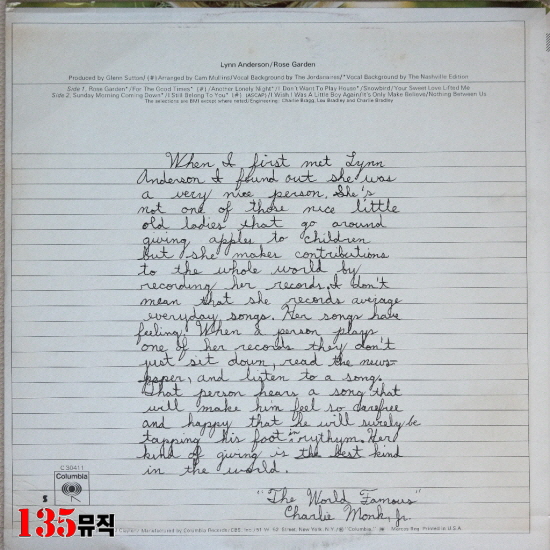 Lynn Anderson/Rose Garden
Produced by Glenn Sutton/(#)Arranged by Cam Mullins/Vocal Background by The Jordanaires/*Vocal Background by The Nashville Edition
Side 1. Rose Garden*/For The Good Times* (#)/Another Lonely Night*/I Don't Want To Play House*/Snowbird/Your Sweet Love Lifted Me
Side 2. Sunday Morning Coming Down*/I Still Belong To You* (#) (ASCAP)/I Wish I Was A Little Boy Again/It's Only Make Believe/Nothing Between Us
The selections are BMI except where noted/Engineering: Charlie Bragg, Lou Bradley and Charlie Bradley
When I first met Lynn
Anderson I found out she was
a very nice person. She's
not one of those nice little
old ladies that go around
giving apples to children
but she makes contributions
to the whole world by
recording her records. I don't
mean that she records average
everyday songs. Her songs have
feeling. When a person plays
one of her records they don't
just sit down, read the news-
paper, and listen to a song.
That person hears a song that
will make him feel so carefree
and happy that he will surely be
tapping his foot in rythym. Her
kind of giving is the best kind
in the world.
"The World Famous"
Charlie Monk, Jr.
C 30411
Columbia
S
135뮤직
Manufactured by Columbia Records/CBS, Inc./51 W. 52 Street, New York, N.Y./ "Columbia," Marcas Reg. Printed in U.S.A.